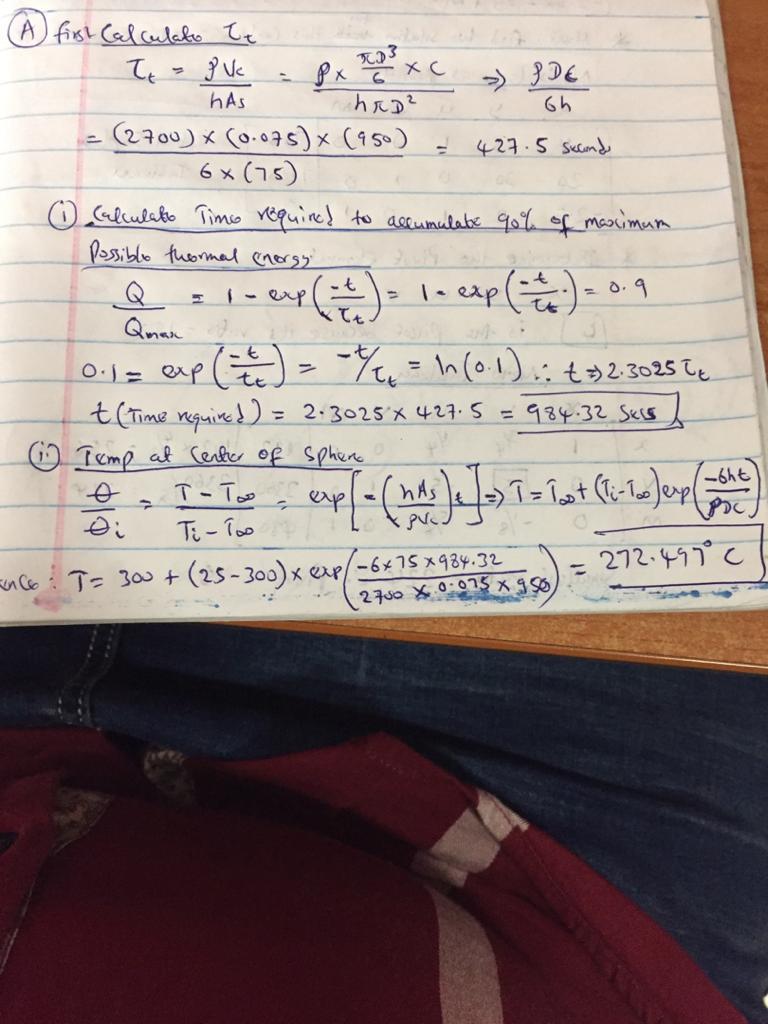 Ⓐ first Calculate τt
τt = ρVc/hAs = (ρ × πD³/6 × C)/(hπD²) ⇒ ρDC/6h
= (2700) × (0.075) × (950)/6 × (75) = 427.5 seconds
ⓘ Calculate Time required to accumulate 90% of maximum
Possible thermal energy
Q/Qmax = 1 - exp(-t/τt) = 1 - exp(-t/τt) = 0.9
0.1 = exp(-t/τt) = -t/τt = ln(0.1) ∴ t ⇒ 2.3025 τt
t (Time required) = 2.3025 × 427.5 = 984.32 Secs
(ii) Temp at Center of Sphere
θ/θi = T - T∞/Ti - T∞ = exp[-(hAs/ρVc)t] ⇒ T = T∞ + (Ti - T∞) exp(-6ht/ρDC)
ence: T = 300 + (25 - 300) × exp(-6 × 75 × 984.32/2700 × 0.075 × 950) = 272.497° C